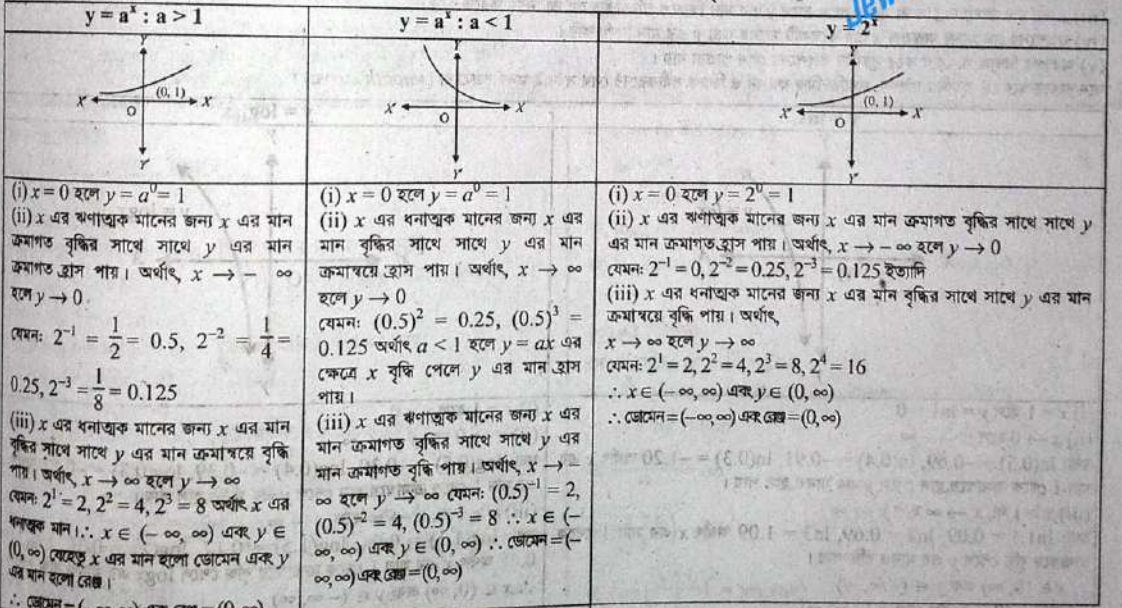 y = aˣ : a > 1
Y
(0, 1)
X′
X
O
Y′
(i) x = 0 হলে y = a⁰ = 1
(ii) x এর ঋণাত্মক মানের জন্য x এর মান
ক্রমাগত বৃদ্ধির সাথে সাথে y এর মান
ক্রমাগত হ্রাস পায়। অর্থাৎ, x → − ∞
হলে y → 0.
যেমন: 2⁻¹ = 1/2 = 0.5, 2⁻² = 1/4 =
0.25, 2⁻³ = 1/8 = 0.125
(iii) x এর ধনাত্মক মানের জন্য x এর মান
বৃদ্ধির সাথে সাথে y এর মান ক্রমান্বয়ে বৃদ্ধি
পায়। অর্থাৎ, x → ∞ হলে y → ∞
যেমন: 2¹ = 2, 2² = 4, 2³ = 8 অর্থাৎ x এর
ধনাত্মক মান।∴ x ∈ (− ∞, ∞) এবং y ∈
(0, ∞) যেহেতু x এর মান হলো ডোমেন এবং y
এর মান হলো রেঞ্জ।
∴ ডোমেন = (− ∞, ∞) এবং রেঞ্জ = (0, ∞)
y = aˣ : a < 1
Y
X′
X
O
Y′
(i) x = 0 হলে y = a⁰ = 1
(ii) x এর ধনাত্মক মানের জন্য x এর
মান বৃদ্ধির সাথে সাথে y এর মান
ক্রমান্বয়ে হ্রাস পায়। অর্থাৎ, x → ∞
হলে y → 0
যেমন: (0.5)² = 0.25, (0.5)³ =
0.125 অর্থাৎ a < 1 হলে y = ax এর
ক্ষেত্রে x বৃদ্ধি পেলে y এর মান হ্রাস
পায়।
(iii) x এর ঋণাত্মক মানের জন্য x এর
মান ক্রমাগত বৃদ্ধির সাথে সাথে y এর
মান ক্রমাগত বৃদ্ধি পায়। অর্থাৎ, x → −
∞ হলে y → ∞ যেমন: (0.5)⁻¹ = 2,
(0.5)⁻² = 4, (0.5)⁻³ = 8 ∴ x ∈ (−
∞, ∞) এবং y ∈ (0, ∞) ∴ ডোমেন = (−
∞, ∞) এবং রেঞ্জ = (0, ∞)
y = 2ˣ
Y
(0, 1)
X′
X
O
Y′
(i) x = 0 হলে y = 2⁰ = 1
(ii) x এর ঋণাত্মক মানের জন্য x এর মান ক্রমাগত বৃদ্ধির সাথে সাথে y
এর মান ক্রমাগত হ্রাস পায়। অর্থাৎ, x → − ∞ হলে y → 0
যেমন: 2⁻¹ = 0, 2⁻² = 0.25, 2⁻³ = 0.125 ইত্যাদি
(iii) x এর ধনাত্মক মানের জন্য x এর মান বৃদ্ধির সাথে সাথে y এর মান
ক্রমান্বয়ে বৃদ্ধি পায়। অর্থাৎ,
x → ∞ হলে y → ∞
যেমন: 2¹ = 2, 2² = 4, 2³ = 8, 2⁴ = 16
∴ x ∈ (− ∞, ∞) এবং y ∈ (0, ∞)
∴ ডোমেন = (−∞, ∞) এবং রেঞ্জ = (0, ∞)